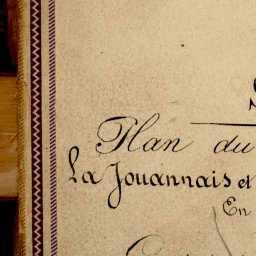 Plan du
La Jouannais et
En